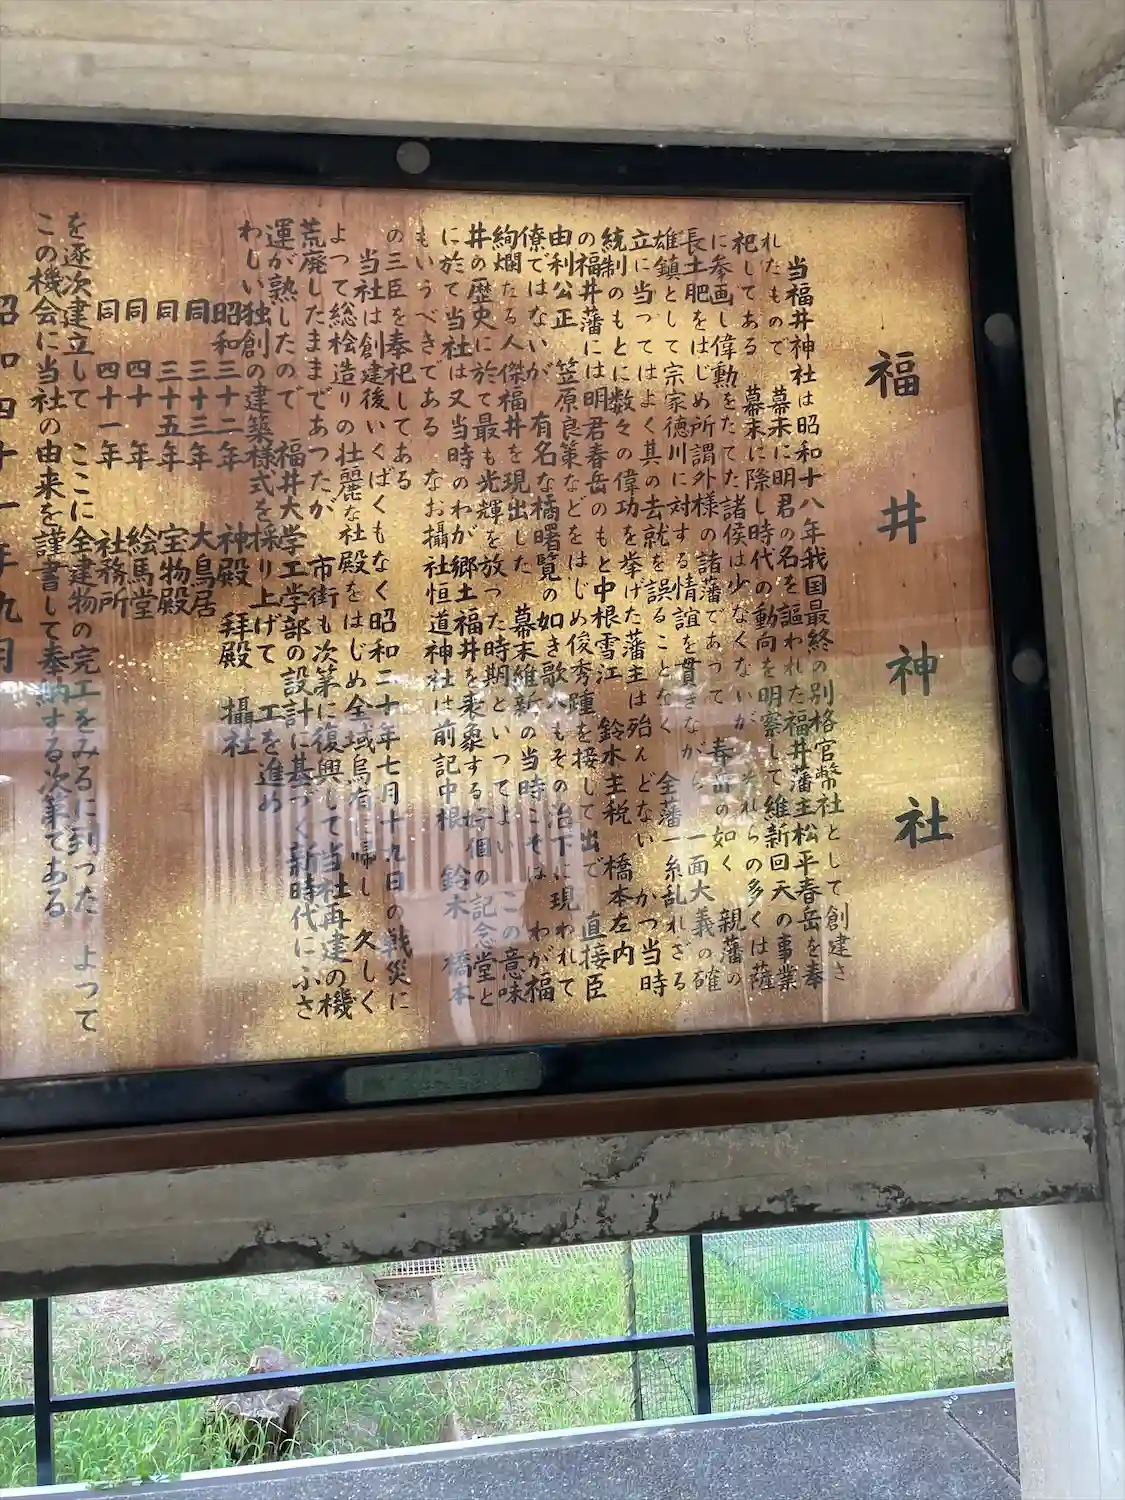 福井神社
当福井神社は昭和十八年我国最終の別格官幣社として創建さ
れたもので　幕末に明君の名を謳われた福井藩主松平春岳を奉
祀してある　幕末に際し時代の動向を明察して維新回天の事業
に参画し偉勳をたてた諸侯は少なくないが　それらの多くは薩
長土肥をはじめ所謂外様の諸藩であって　春岳の如く　親藩の
雄鎮として宗家徳川に対する情誼を貫きながら　一面大義の確
立に当ってはよく其の去就を誤ることなく　全藩一糸乱れざる
統制のもとに数々の偉功を挙げた藩主は殆んどない　かつ当時
の福井藩には明君春岳のもと中根雪江　鈴木主税　橋本左内
由利公正　笠原良策などをはじめ俊秀踵を接して出で　直接臣
僚ではないが　有名な橘曙覧の如き歌人もその治下に現われて
絢爛たる人傑福井を現出した　幕末維新の当時こそは　わが福
井の歴史に於て最も光輝を放った時期といってよい　この意味
に於て当社は又当時のわが郷土福井を表象する好個の記念堂と
もいうべきである　なお攝社恒道神社は前記中根　鈴木　橋本
の三臣を奉祀してある
当社は創建後いくばくもなく昭和二十年七月十九日の戦災に
よつて総桧造りの壮麗な社殿をはじめ全域烏有に帰し　久しく
荒廃したままであつたが　市街も次第に復興して当社再建の機
運が熟したので　福井大学工学部の設計に基づく新時代にふさ
わしい独創の建築様式を採り上げて　工を進め
昭和三十二年　神殿　拝殿　攝社
同　三十三年　大鳥居
同　三十五年　宝物殿
同　四十　年　絵馬堂
同　四十一年　社務所
を逐次建立して　ここに全建物の完工をみるに到つた　よつて
この機会に当社の由来を謹書して奉納する次第である
昭和四十一年九月